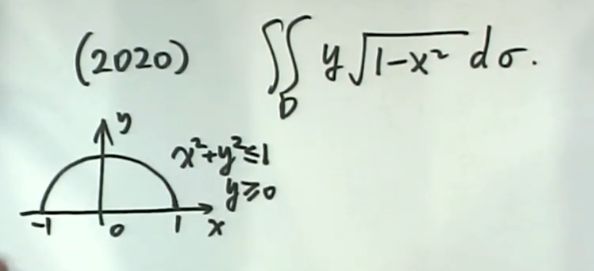 (2020) ∬_D y√(1-x²) dσ.
y
x²+y²≤1
y≥0
-1 0 1 x